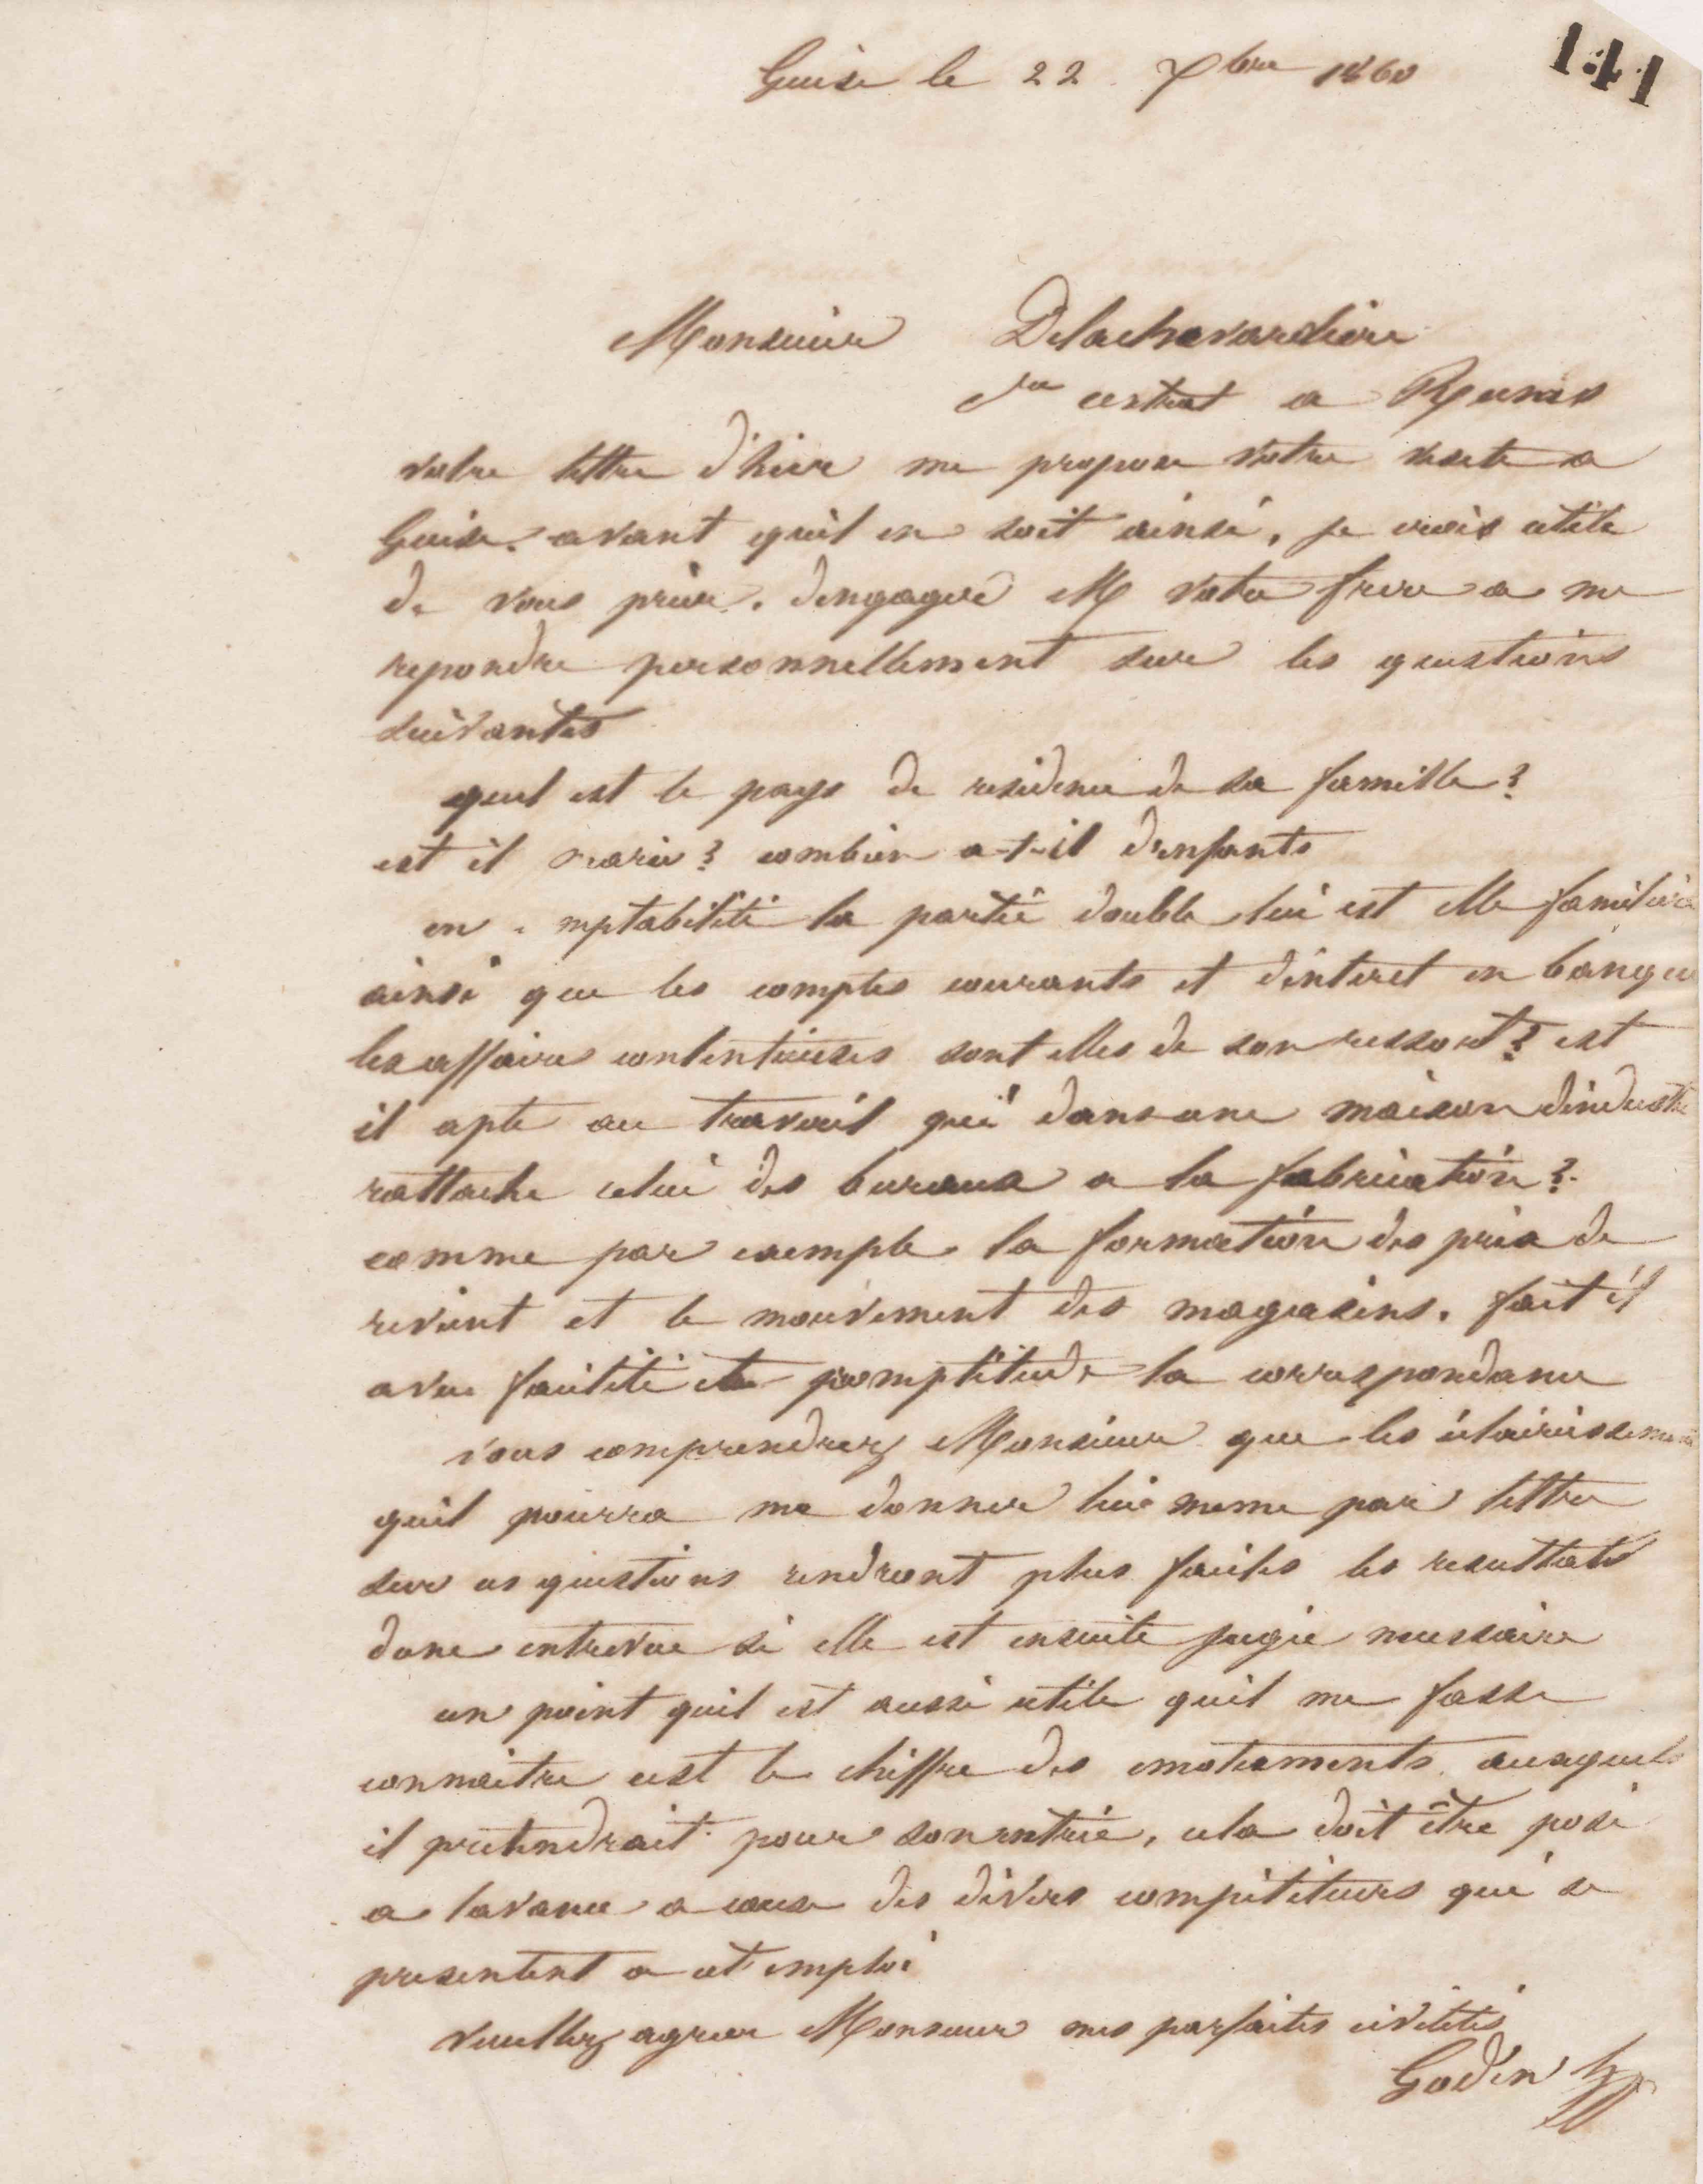 Guise le 22 7bre 1860
141
Monsieur Delachavardiere
central a Reims
votre lettre d'hier me propose votre visite a
Guise. avant quil en soit ainsi, je crois utile
de vous prier. dengager M votre frere a me
repondre personnellement sur les questions
suivantes
quel est le pays de residence de sa famille?
est il marié? combien a-t-il denfants
en mptabilité la partie double lui est elle familière
ainsi que les comptes courants et dinteret en banque
les affaires contentieuses sont elles de son ressort? est
il apte au travail qui dans une maison dindustrie
rattache celui des bureaux a la fabrication?
comme par exemple la formation des prix de
revient et le mouvement des magasins. fait il
avec facilité et promptitude la correspondance
vous comprendrez Monsieur que les éclaircissements
quil pourra me donner lui meme par lettre
sur ces questions rendront plus faciles les resultats
dune entrevue si elle est ensuite jugée necessaire
un point quil est aussi utile quil me fasse
connaitre cest le chiffre des emoluments auxquels
il pretendrait pour son entrée, cela doit être posé
a lavance a cause des divers compétiteurs qui se
presentent a cet emploi
veuillez agreer Monsieur mes parfaites civilités
Godin